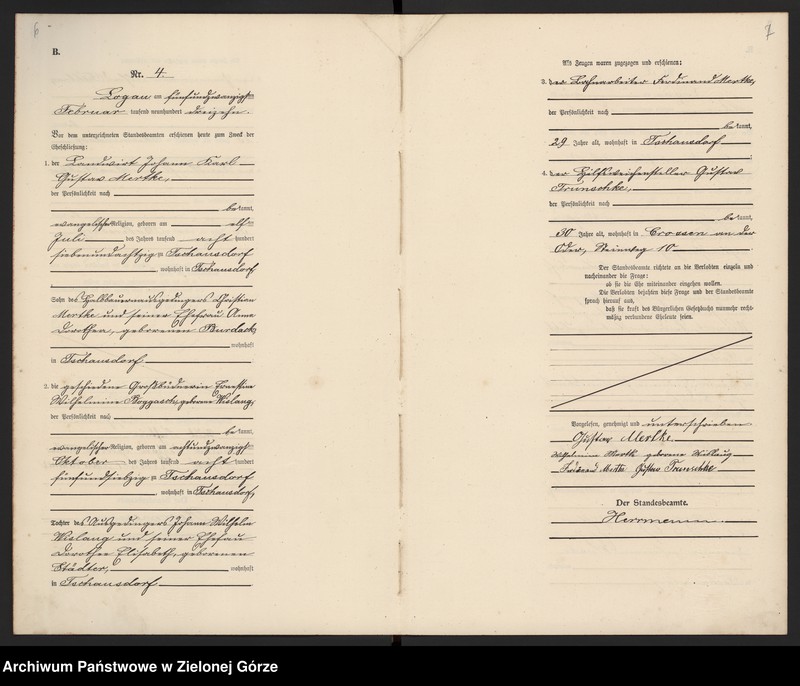 B.
Nr. 4.
Logau am fünfundzwanzigsten
Februar tausend neunhundert dreizehn.
Vor dem unterzeichneten Standesbeamten erschienen heute zum Zweck der
Eheschließung:
1. der Landwirt Johann Karl
Gustav Mertke,
der Persönlichkeit nach
bekannt,
evangelischer Religion, geboren am elften
Juli des Jahres tausend acht hundert
siebenundachtzig zu Tschausdorf
, wohnhaft in Tschausdorf
Sohn des Halbbauernausgedingers Christian
Mertke und seiner Ehefrau Anne
Dorothea, geborenen Burdack
wohnhaft
in Tschausdorf
2. die geschiedene Großbüdnerin Ernestine
Wilhelmine Noggasch, geborene Wislang,
der Persönlichkeit nach
bekannt,
evangelischer Religion, geboren am achtundzwanzigsten
Oktober des Jahres tausend acht hundert
fünfundsiebzig zu Tschausdorf
, wohnhaft in Tschausdorf,
Tochter des Ausgedingers Johann Wilhelm
Wislang und seiner Ehefrau
Dorothee Elisabeth, geborenen
Städter, wohnhaft
in Tschausdorf
7
Als Zeugen waren zugezogen und erschienen:
3. der Bahnarbeiter Ferdinand Mertke,
der Persönlichkeit nach
bekannt,
29 Jahre alt, wohnhaft in Tschausdorf
;
4. der Hilfsweichensteller Gustav
Trunschke,
der Persönlichkeit nach
bekannt,
30 Jahre alt, wohnhaft in Crossen an der
Oder, Steinweg 10.
Der Standesbeamte richtete an die Verlobten einzeln und
nacheinander die Frage:
ob sie die Ehe miteinander eingehen wollen.
Die Verlobten bejahten diese Frage und der Standesbeamte
sprach hierauf aus,
daß sie kraft des Bürgerlichen Gesetzbuchs nunmehr recht-
mäßig verbundene Eheleute seien.
Vorgelesen, genehmigt und unterschrieben
Gustav Mertke.
Wilhelmine Mertke geborene Wislang
Ferdinand Mertke Gustav Trunschke
Der Standesbeamte.
Herrmann.
Archiwum Państwowe w Zielonej Górze